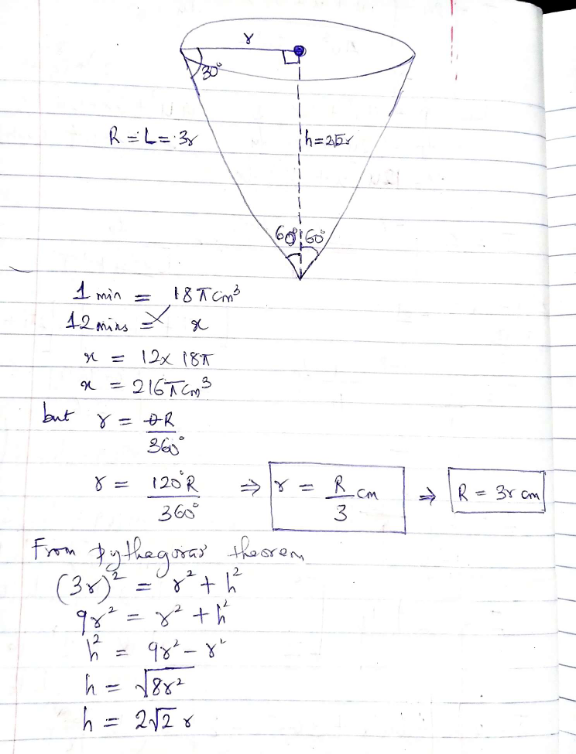 r
30°
R = L = 3r
h = 2√2r
60° 60°
1 min = 18πcm³
12 mins = x
x = 12x 18π
x = 216πcm³
but r = θR/360°
r = 120°R/360° ⇒ r = R/3 cm ⇒ R = 3r cm
From pythagoras' theorem
(3r)² = r² + h²
9r² = r² + h²
h² = 9r² - r²
h = √8r²
h = 2√2 r